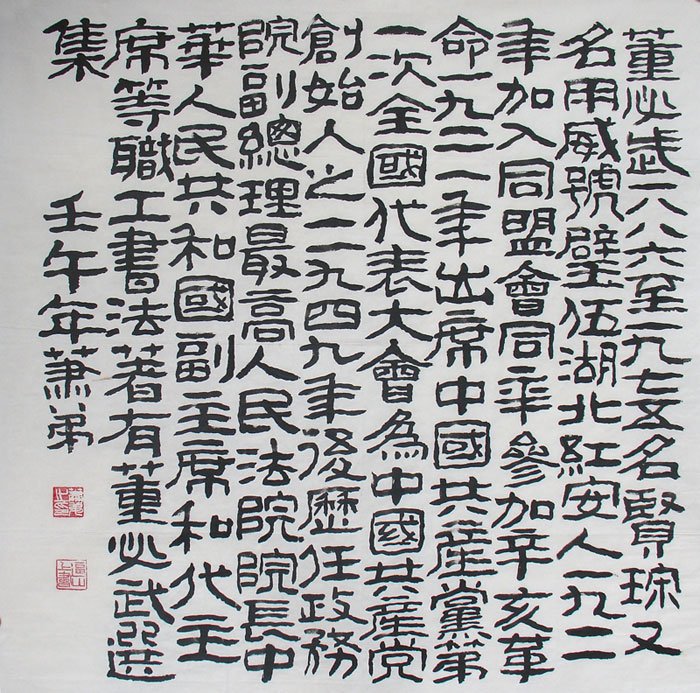 董必武一八八六至一九七五名賢琮又
名用威號璧伍湖北紅安人一九一一
年加入同盟會同年參加辛亥革
命一九二一年出席中國共産黨第
一次全國代表大會為中國共産党
創始人之一一九四九年後歷任政務
院副總理最高人民法院院長中
華人民共和國副主席和代主
席等職工書法著有董必武選
集
壬午年蕭弟